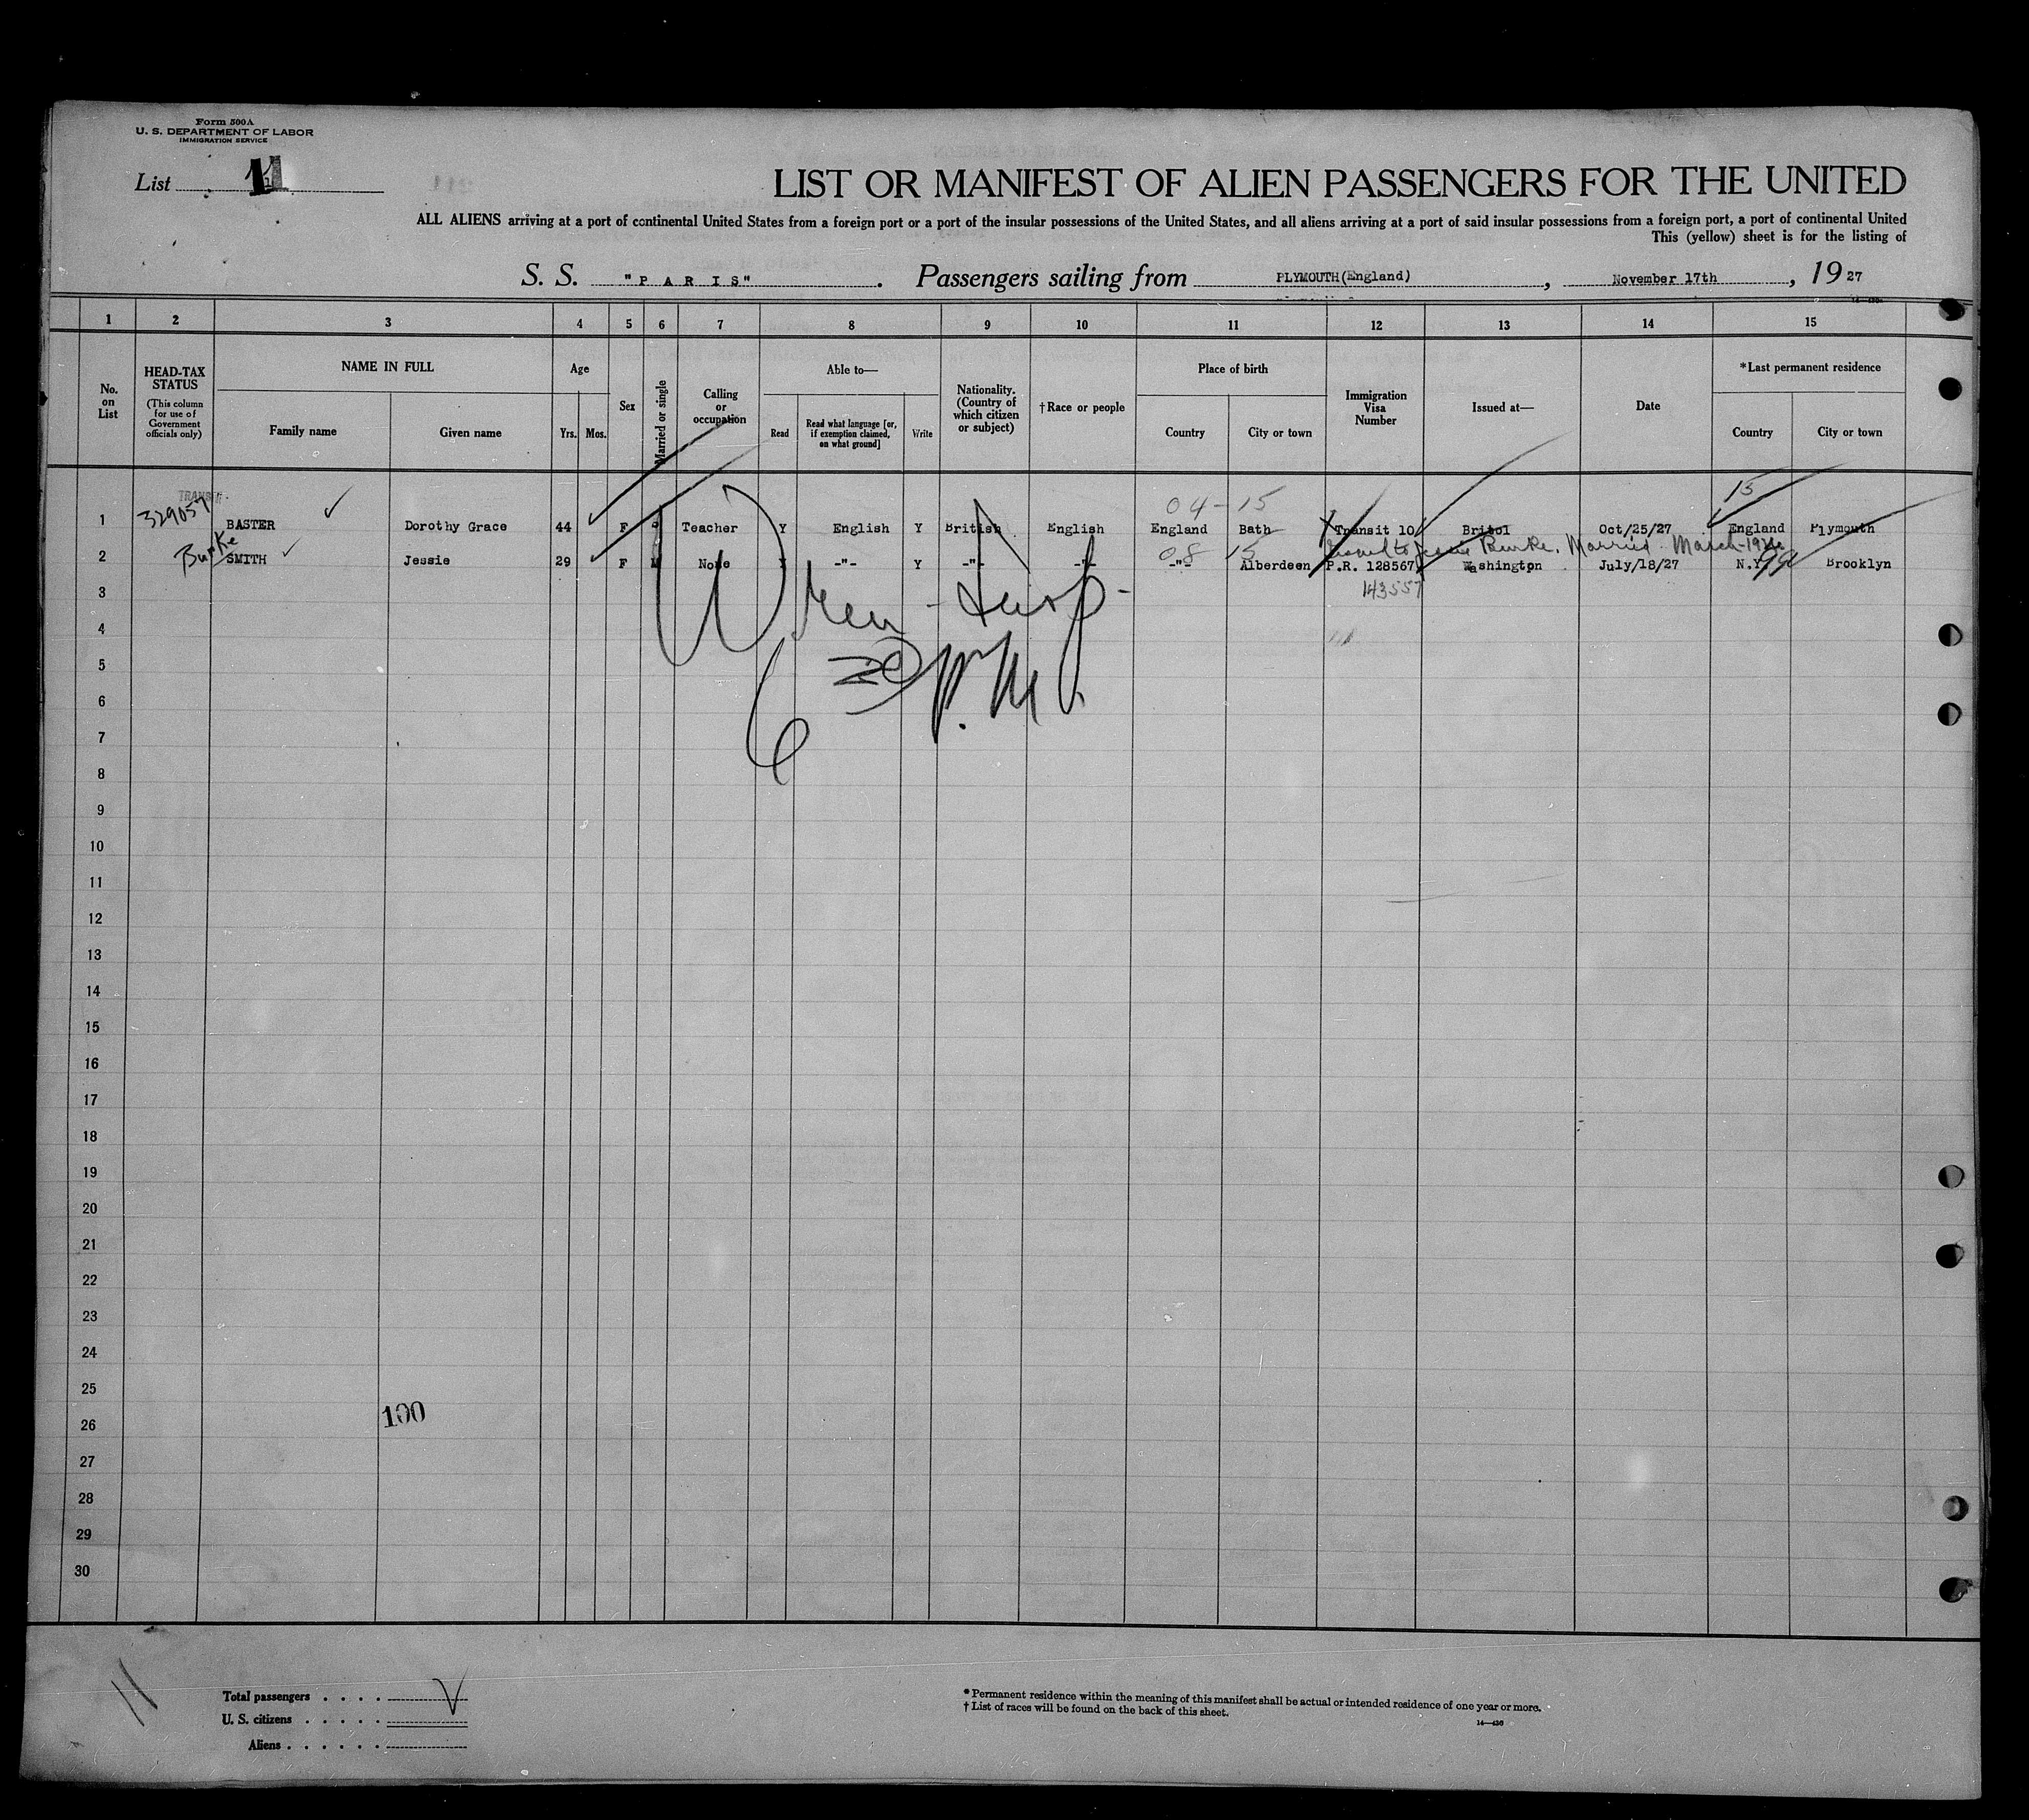 Form 500A
U. S. DEPARTMENT OF LABOR
IMMIGRATION SERVICE
List 11
LIST OR MANIFEST OF ALIEN PASSENGERS FOR THE UNITED
ALL ALIENS arriving at a port of continental United States from a foreign port or a port of the insular possessions of the United States, and all aliens arriving at a port of said insular possessions from a foreign port, a port of continental United
This (yellow) sheet is for the listing of
S. S. "P A R I S" . Passengers sailing from PLYMOUTH(England) , November 17th , 19 27
1 2 3 4 5 6 7 8 9 10 11 12 13 14 15
No. on List
HEAD-TAX STATUS
(This column for use of Government officials only)
NAME IN FULL
Family name Given name
Age
Yrs. Mos.
Sex
Married or single
Calling or occupation
Able to—
Read
Read what language [or, if exemption claimed, on what ground]
Write
Nationality. (Country of which citizen or subject)
†Race or people
Place of birth
Country City or town
Immigration Visa Number
Issued at—
Date
*Last permanent residence
Country City or town
TRANSIT
04-15
15
1 329057 BASTER Dorothy Grace 44 F S Teacher Y English Y British English England Bath Transit 10 Britol Oct/25/27 England Plymouth
Burke
08 15
Issued to Jessie Burke. Married March-1924
2 SMITH Jessie 29 F M None Y -"- Y -"- -"- -"- Alberdeen P.R. 128567 Washington July/18/27 N.Y. 99 Brooklyn
143557
3
4
5
6
7
8
9
10
11
12
13
14
15
16
17
18
19
20
21
22
23
24
25
26
27
28
29
30
100
11
Total passengers . . . .
U. S. citizens . . . . .
Aliens . . . . . .
* Permanent residence within the meaning of this manifest shall be actual or intended residence of one year or more.
† List of races will be found on the back of this sheet.
14—430